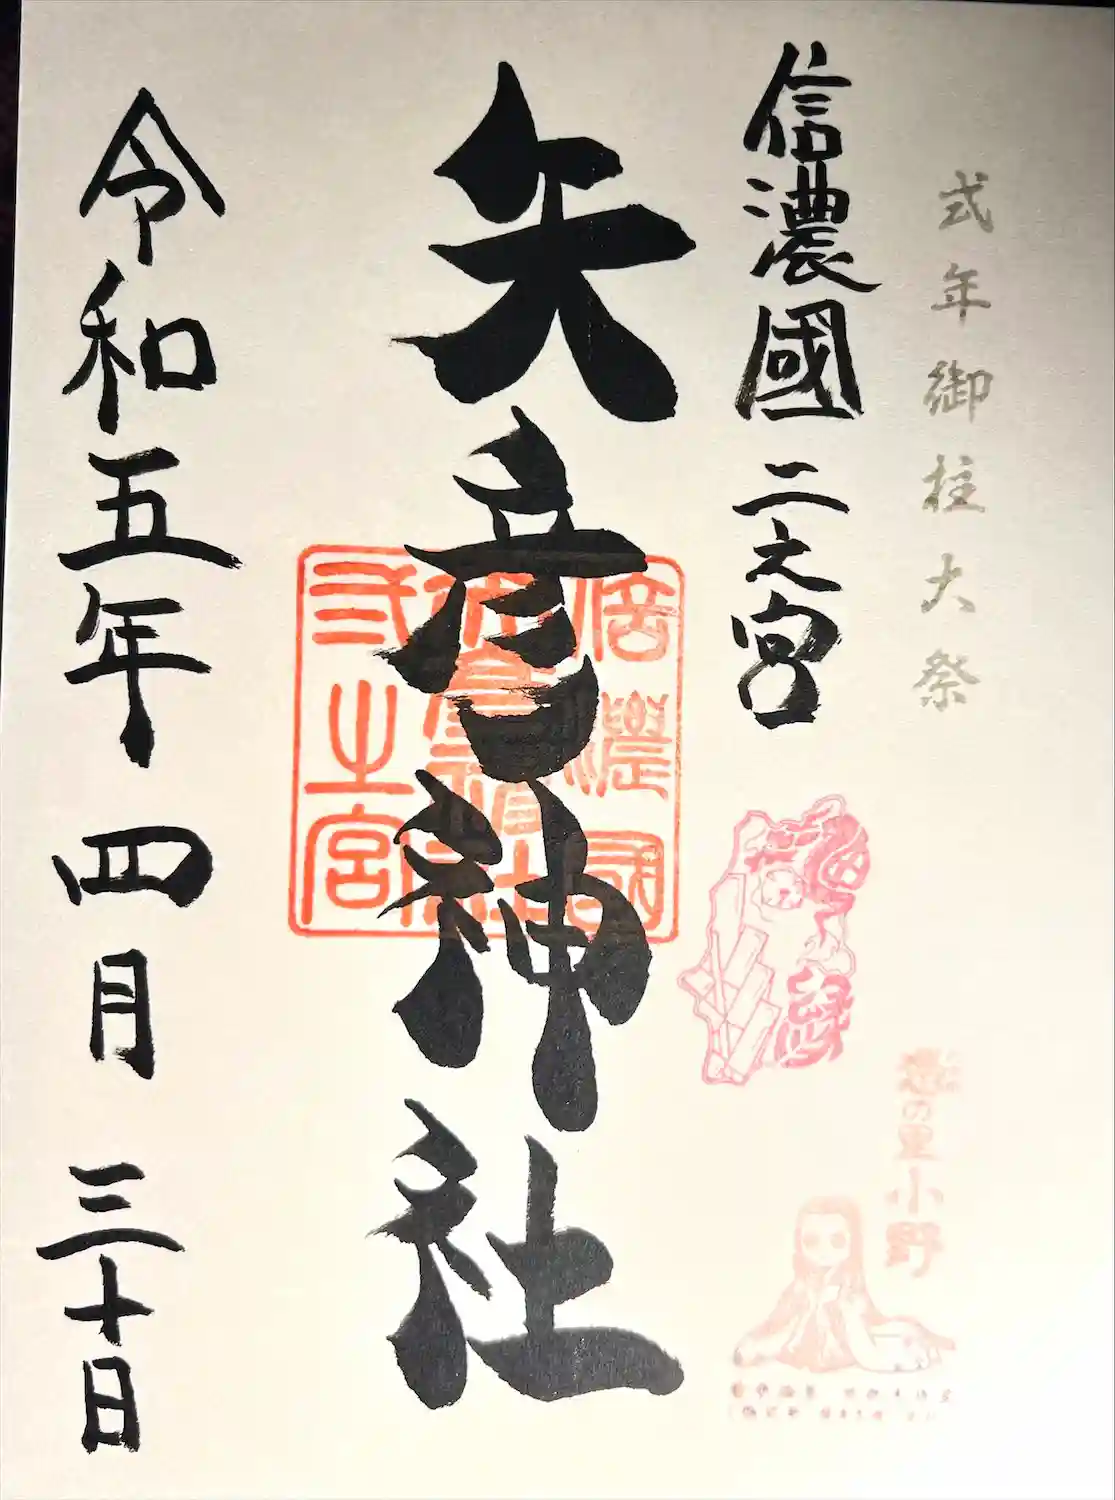 式年御柱大祭
信濃國二之宮
矢彦神社
信濃國
弍之宮
憑の里
小野
令和五年四月三十日